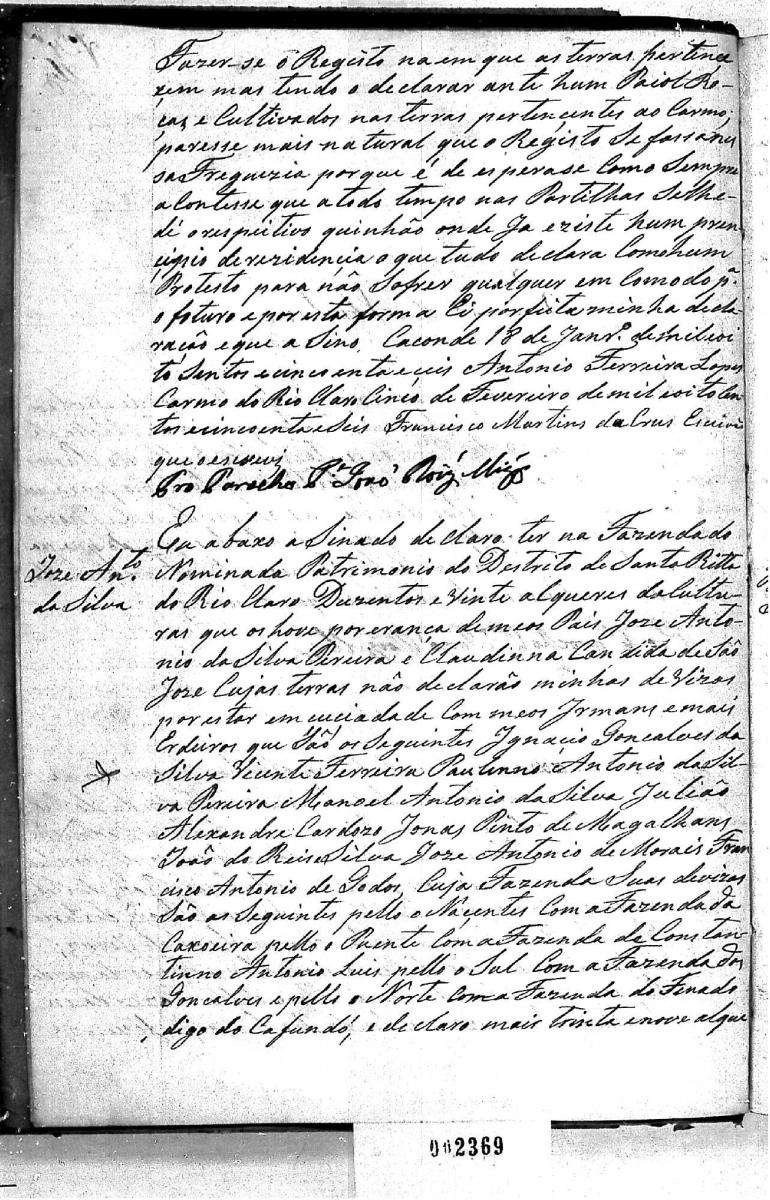 Fazer-se o Registo na em que as terras pertence
rem mas tendo o declarar ante hum Paiol Ro-
ças, e Cultivados nas terras pertencentes ao Carmo,
paresse mais natural que o Registo Se fassa nes
sa Freguezia porque é de esperase Como Sempre
acontesse que a todo tempo nas Partilhas Selhe-
dê o respeitivo quinhão onde Ja eziste hum pren
cipio de rezidencia o que tudo declara Como hum
Protesto para não Sofrer qualquer em Comodo pª.
o foturo e por esta forma Ei por feita minha decla
ração e que a Sino. Caconde 18 de Janrº. de mil eoi
to Sentos e cincoenta e seis Antonio Ferreira Lopes
Carmo do Rio Claro Cinco de Fevereiro de mil e oito Cen
tos e cincoenta e Seis Francisco Martins da Crus Escriv
que o escrevi
Pro Parocho Pe. João Roiz Miz
Joze Anto.
da Silva
Eu abaxo a Sinado declaro ter na Fazenda do
Nominada Patrimonio do Destrito de Santa Ritta
do Rio Claro Duzentos e Vinte alqueres da Cultu-
ras que os hove por erança de meos Pais Joze Anto-
nio da Silva Pereira e Claudinna Candida de São
Joze Cujas terras não declarão minhas devizas
por estar em cuciadade Com meos Irmans e mais
Erdeiros que São os Seguintes Ignacio Goncalves da
Silva Vicente Ferreira Paulinno Antonio da Sil-
va Pereira Manoel Antonio da Silva Julião
Alexandre Cardozo Jonas Pinto de Magalhans
João do Reis e Silva Joze Antonio de Morais Fran
cisco Antonio de Godos, Cuja Fazenda Suas devizas
São as Seguintes pello o Nacentes Com a Fazenda da
Caxoeira pello o Puente Com a Fazenda de Constan-
tinno Antonio Luis pello o Sul Com a Fazenda dos
Goncalves e pello o Norte com a Fazenda do Finado
digo do Cafundó, e declaro mais trinta e nove alque
002369